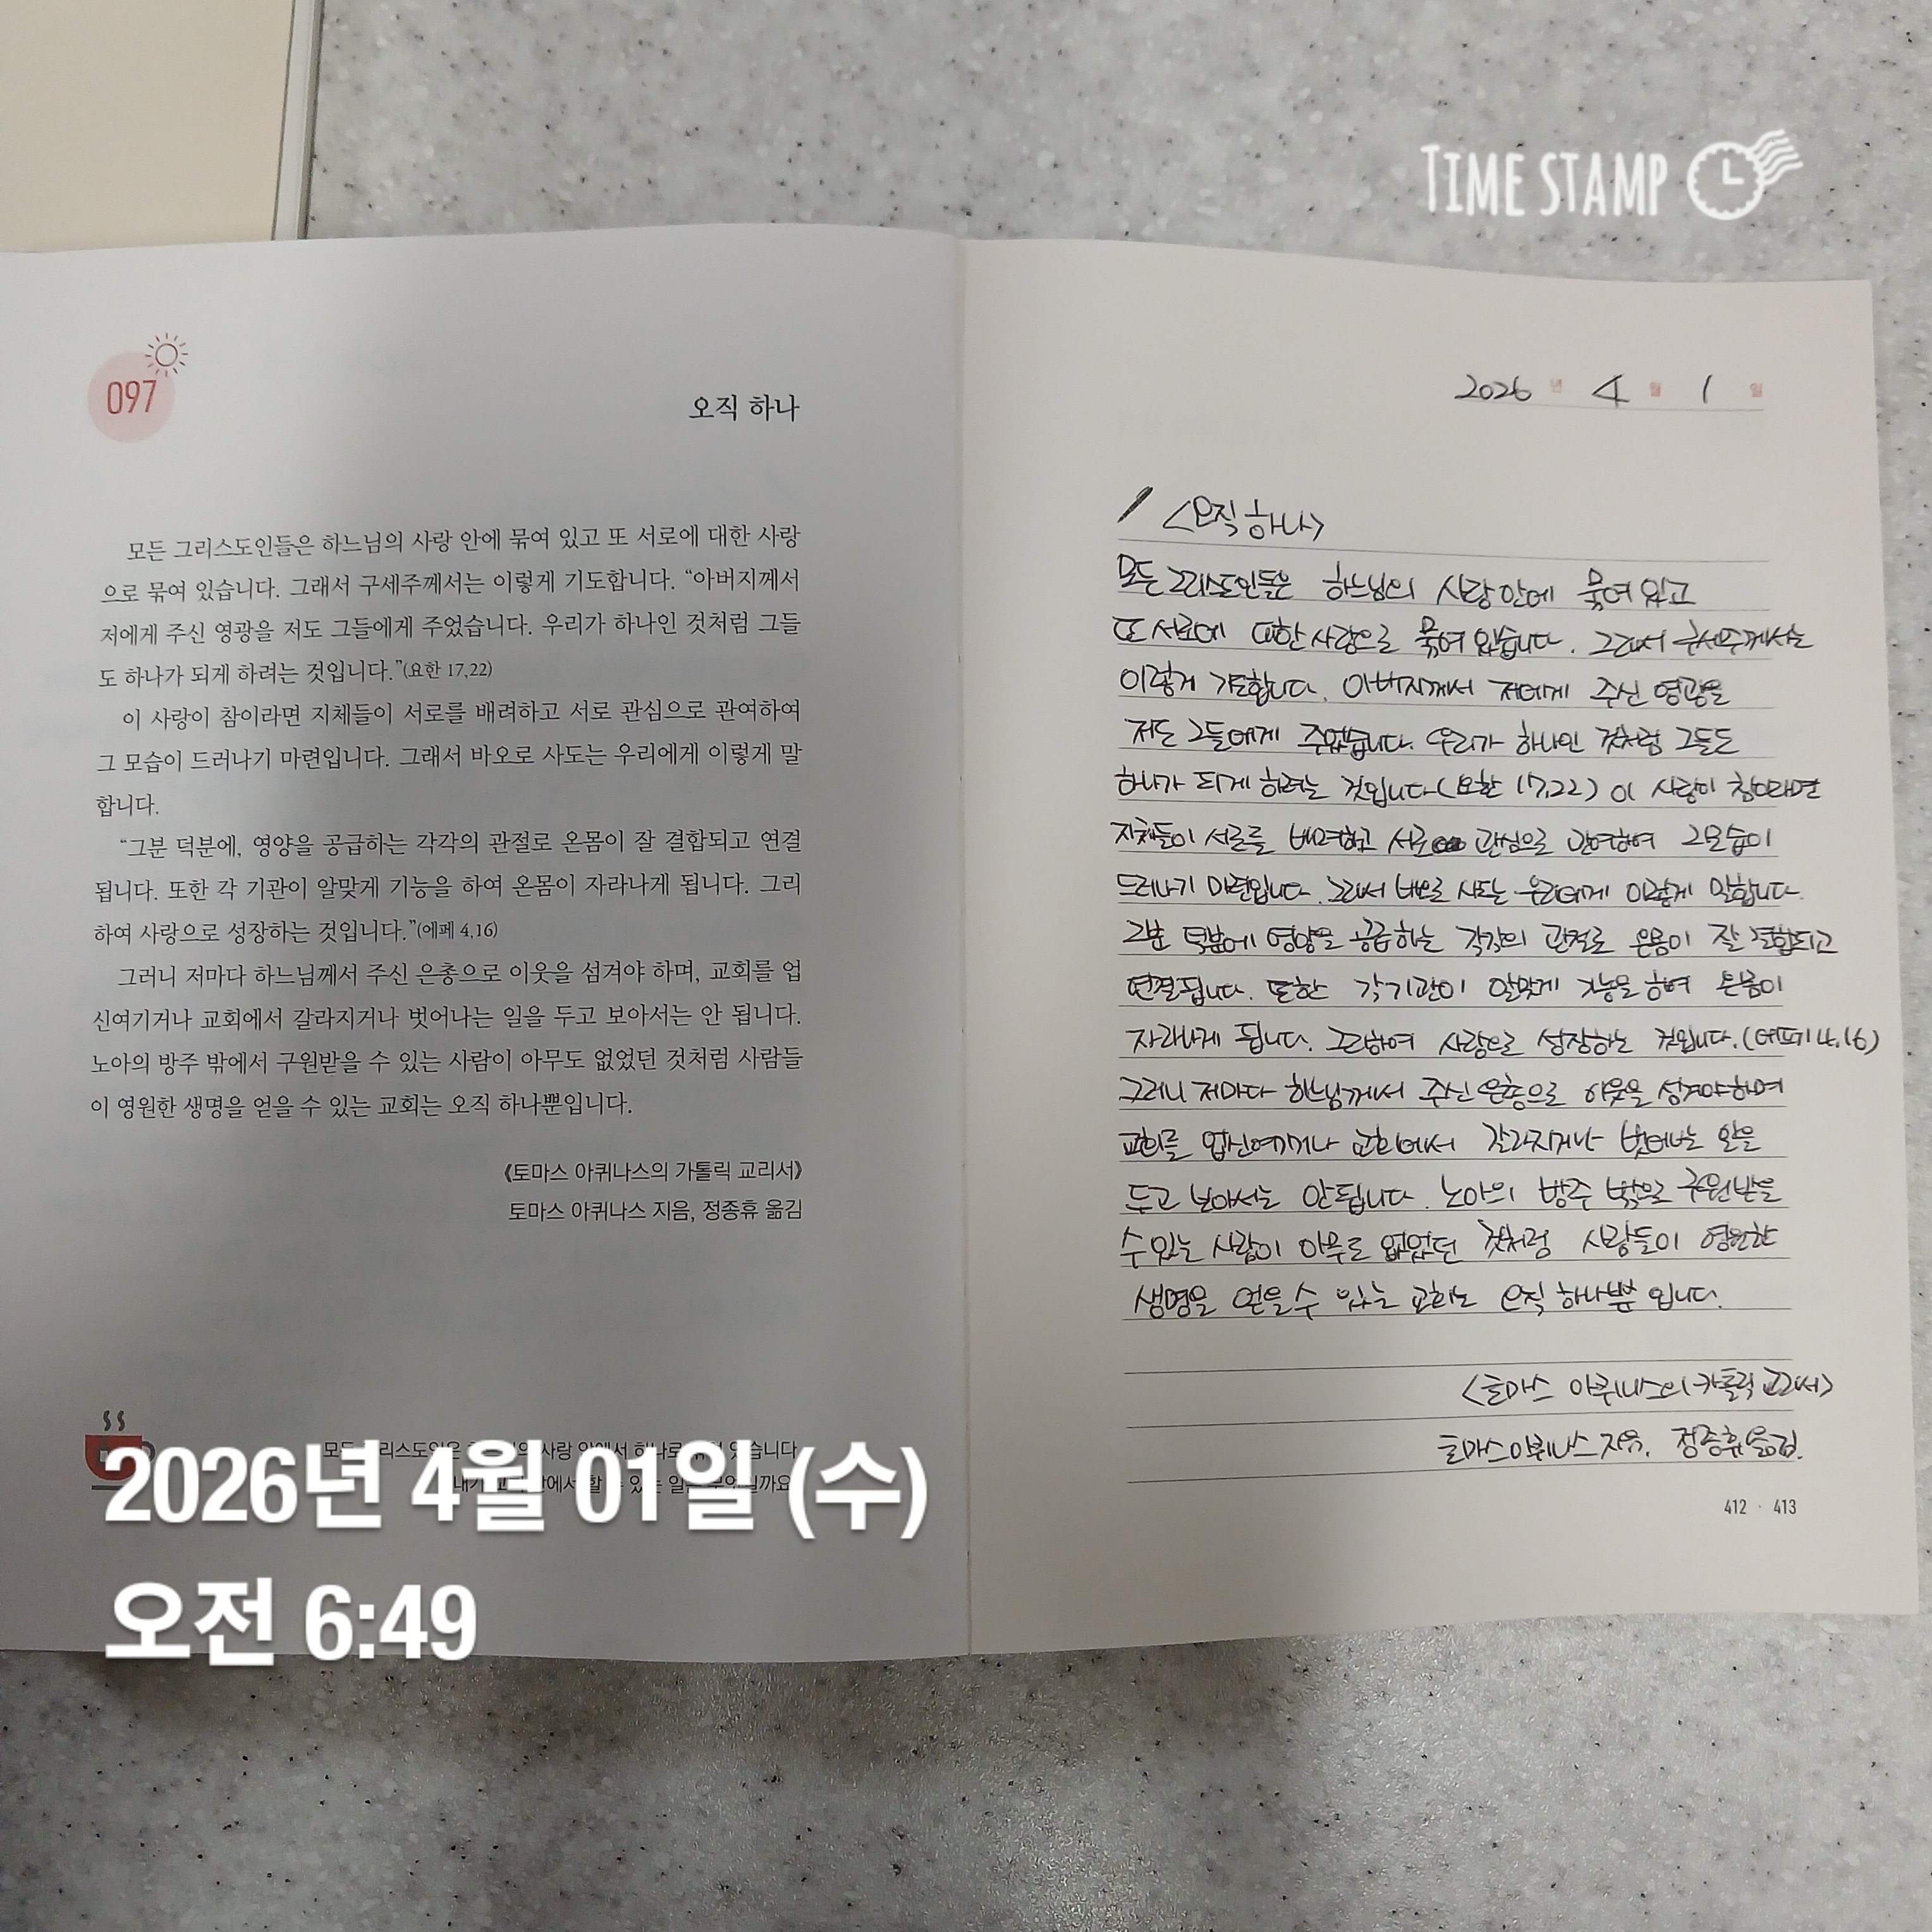 TIME STAMP
097
오직 하나
모든 그리스도인들은 하느님의 사랑 안에 묶여 있고 또 서로에 대한 사랑
으로 묶여 있습니다. 그래서 구세주께서는 이렇게 기도합니다. “아버지께서
저에게 주신 영광을 저도 그들에게 주었습니다. 우리가 하나인 것처럼 그들
도 하나가 되게 하려는 것입니다.”(요한 17,22)
이 사랑이 참이라면 지체들이 서로를 배려하고 서로 관심으로 관여하여
그 모습이 드러나기 마련입니다. 그래서 바오로 사도는 우리에게 이렇게 말
합니다.
“그분 덕분에, 영양을 공급하는 각각의 관절로 온몸이 잘 결합되고 연결
됩니다. 또한 각 기관이 알맞게 기능을 하여 온몸이 자라나게 됩니다. 그리
하여 사랑으로 성장하는 것입니다.”(에페 4,16)
그러니 저마다 하느님께서 주신 은총으로 이웃을 섬겨야 하며, 교회를 업
신여기거나 교회에서 갈라지거나 벗어나는 일을 두고 보아서는 안 됩니다.
노아의 방주 밖에서 구원받을 수 있는 사람이 아무도 없었던 것처럼 사람들
이 영원한 생명을 얻을 수 있는 교회는 오직 하나뿐입니다.
《토마스 아퀴나스의 가톨릭 교리서》
토마스 아퀴나스 지음, 정종휴 옮김
사랑 안에서
2026년 4월 01일 (수)
오전 6:49
2026 년 4 월 1 일
<오직 하나>
모든 그리스도인들은 하느님의 사랑 안에 묶여 있고
또 서로에 대한 사랑으로 묶여 있습니다. 그래서 구세주께서는
이렇게 기도합니다. 아버지께서 저에게 주신 영광을
저도 그들에게 주었습니다. 우리가 하나인 것처럼 그들도
하나가 되게 하려는 것입니다(요한 17,22) 이 사랑이 참이라면
지체들이 서로를 배려하고 서로 관심으로 관여하여 그모습이
드러나기 마련입니다. 그래서 바오로 사도는 우리에게 이렇게 말합니다.
그분 덕분에 영양을 공급하는 각각의 관절로 온몸이 잘 결합되고
연결됩니다. 또한 각기관이 알맞게 기능을 하여 온몸이
자라나게 됩니다. 그리하여 사랑으로 성장하는 것입니다.(에페 4,16)
그러니 저마다 하느님께서 주신 은총으로 이웃을 섬겨야하며
교회를 업신여기거나 교회에서 갈라지거나 벗어나는 일을
두고 보아서는 안됩니다. 노아의 방주 밖으로 구원받을
수있는 사람이 아무도 없었던 것처럼 사람들이 영원한
생명을 얻을수 있는 교회는 오직 하나뿐 입니다.
<토마스 아퀴나스의 카톨릭 교리서>
토마스아퀴나스 지음, 정종휴옮김.
412 · 413